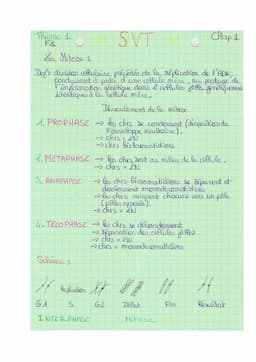 Thème 1 SVT Chap 1
La Mitose :
Def : division cellulaire précédée de la réplication de l'ADN,
conduisant à partir d'une cellule mère, au partage de
l'information génétique dans 2 cellules filles génétiquement
identiques à la cellule mère.
Déroulement de la mitose
1. PROPHASE → les chrs se condensent (disparition de
l'enveloppe nucléaire).
→ chrs = 2N
→ chrs bichromatidiens
2. METAPHASE → les chrs sont au milieu de la cellule.
→ chrs = 2N
3. ANAPHASE → les chrs bichromatidiens se séparent et
deviennent monochromatidiens
→ les chrs migrent chacuns vers un pôle
(pôles opposés).
→ chrs = 2N
4. TELOPHASE → les chrs se décondensent
→ séparation des cellules filles
→ chrs = 2N
→ chrs = monochromatidiens
Schéma :
Réplication
G1 S G2 Début Fin Résultat
INTERPHASE Mitose